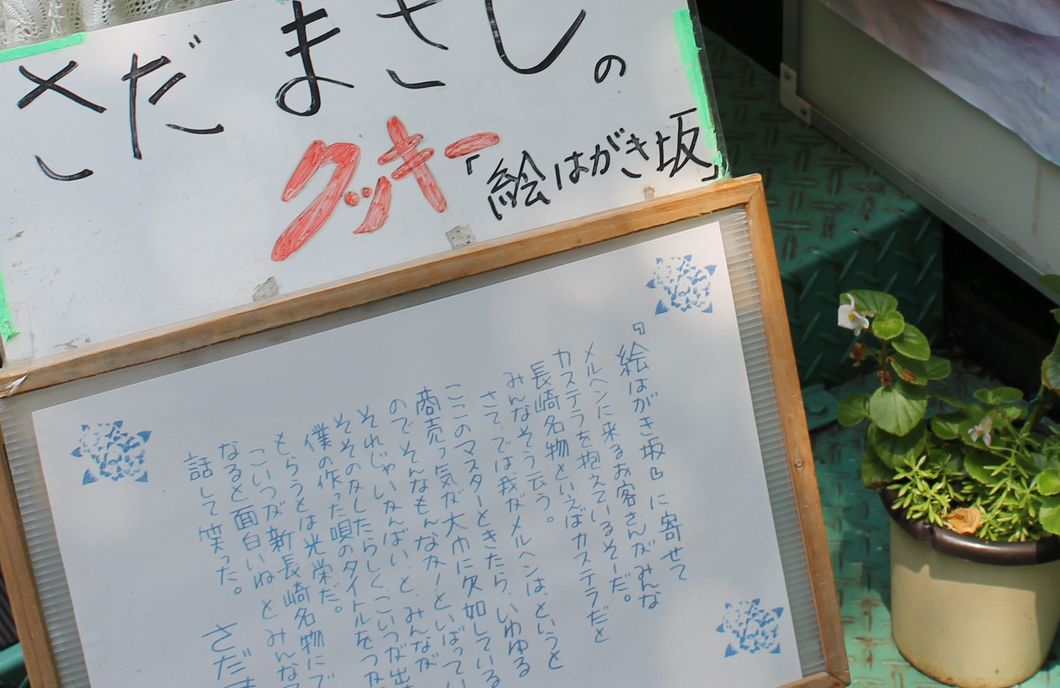 さだまさしの
クッキー「絵はがき坂」
『絵はがき坂』に寄せて
メルヘンに来るお客さんがみんな
カステラを抱えているそーだ。
長崎名物といえばカステラだと
みんなそう云う。
さて、では我がメルヘンは、というと
ここのマスターときたら、いわゆる
商売っ気が大巾に欠如している
ので、そんなもんなかーといばってい
それじゃいかんばい、と、みんなが
そそのかしたらしく、こいつが出
僕の作った唄のタイトルをつ
もらうとは光栄だ。
こいつが新長崎名物にで
なると面白いね、とみんな
話して笑った。
さだ